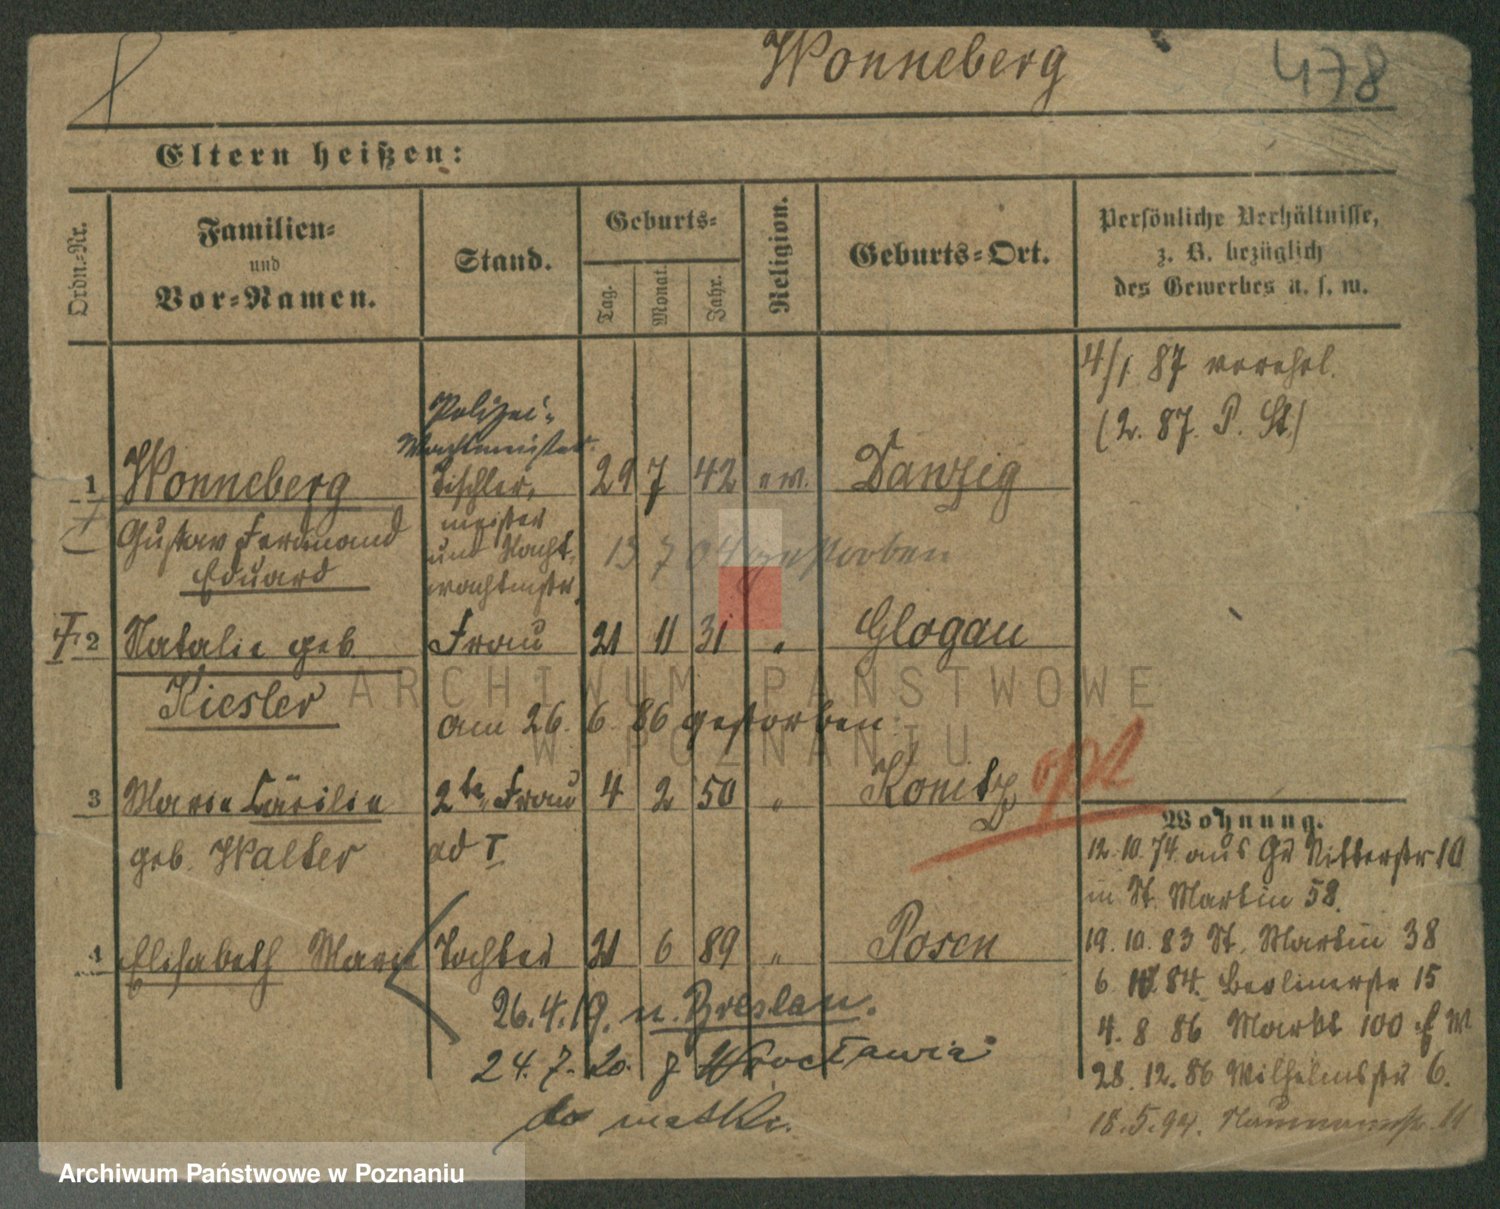 Wonneberg 478
Eltern heißen:
Ordn.-Nr.
Familien-
und
Vor-Namen.
Stand.
Geburts-
Tag.
Monat.
Jahr.
Religion.
Geburts-Ort.
Persönliche Verhältnisse,
z. B. bezüglich
des Gewerbes u. s. w.
4/1 87 verehel.
(2. 87. P. St.)
Polizei-
Wachtmeister
1 Wonneberg Tischler, 29 7 42 ev. Danzig
meister
Gustav Ferdinand und Nacht-
13 7 04 gestorben
Eduard wachtmstr.
2 Natalie geb Frau 21 11 31 " Glogau
Kiesler
am 26. 6. 86 gestorben
3 Marie Cäcilie 2te Frau 4 2 50 " Konitz
geb. Walter ad I
4 Elisabeth Marie Tochter 21 6 89 " Posen
26.4.19. n. Breslau.
24.7.20. z Wrocławia
do matki.
Wohnung.
12.10.74 aus Gr Ritterstr 10
in St. Martin 58.
19.10.83 St. Martin 38
6 10. 84. Berlinerstr 15
4. 8 86 Markt 100
28. 12. 86 Wilhelmsstr 6.
18.5.94. Naumannstr. 11
ARCHIWUM PAŃSTWOWE
W POZNANIU
Archiwum Państwowe w Poznaniu